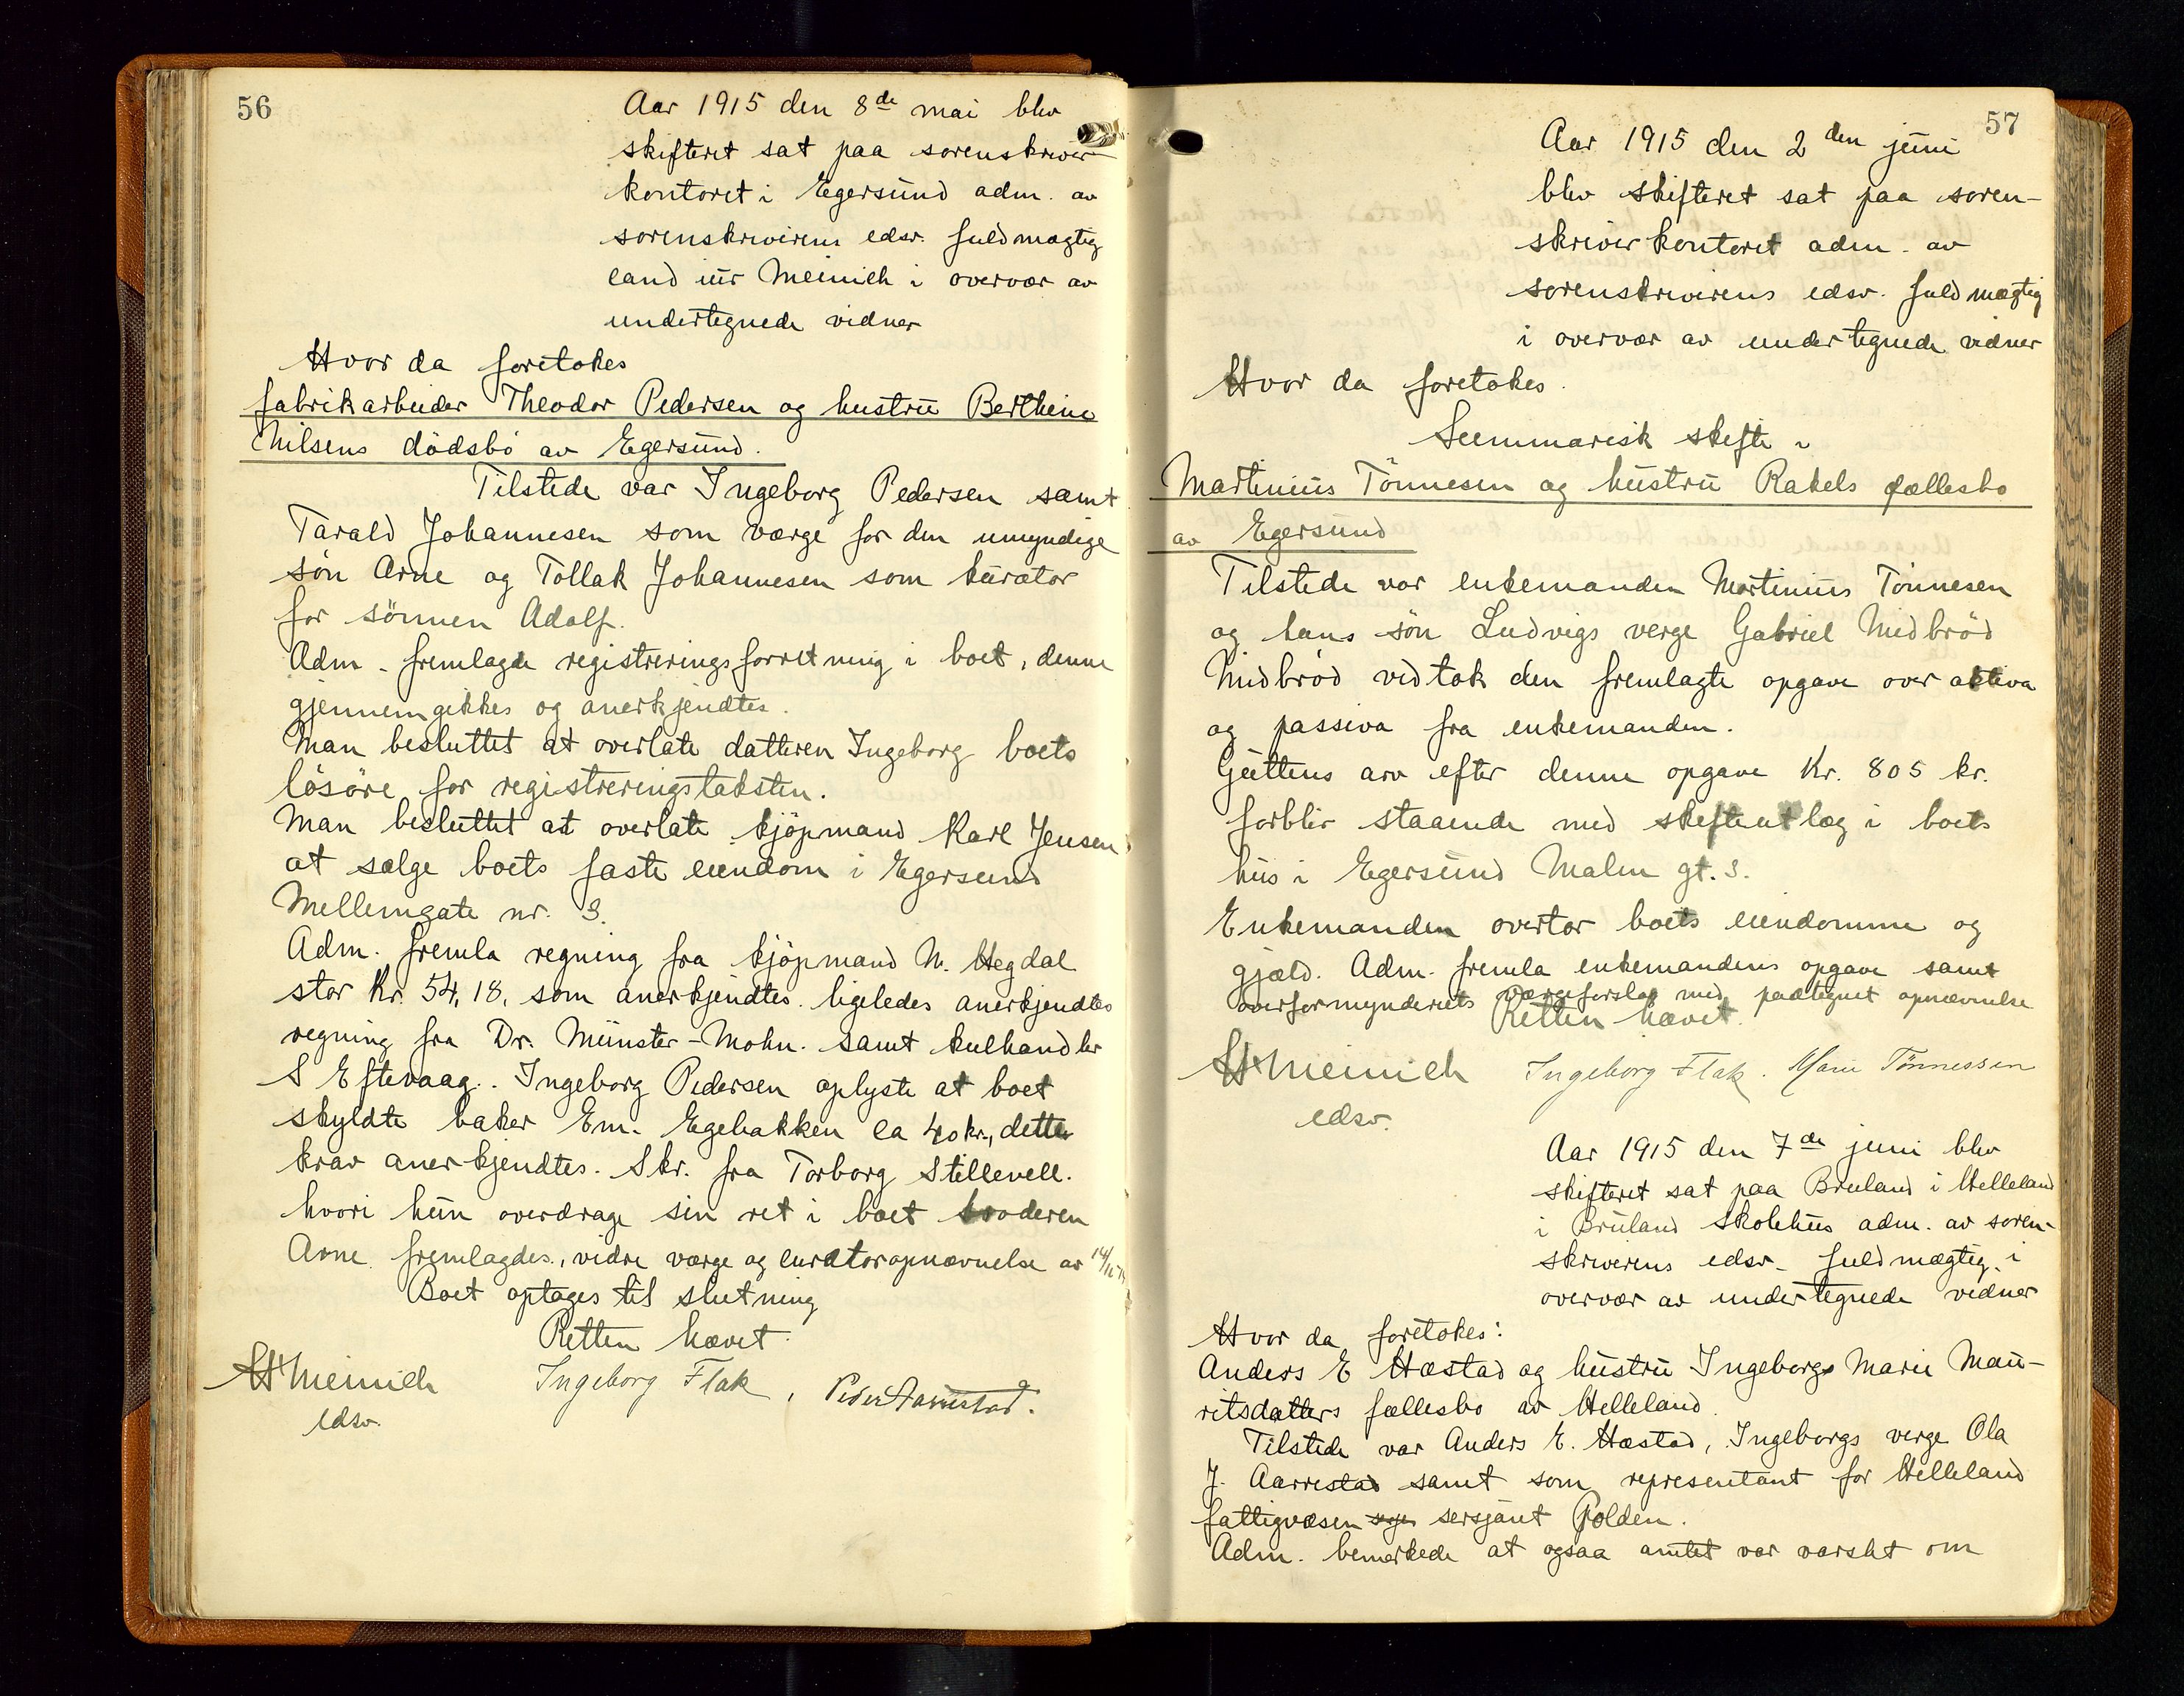 56
Aar 1915 den 8de mai blev
skifteret sat paa sorenskriver-
kontoret i Egersund adm. av
sorenskriverens edsv. fuldmægtig
cand iur Meinich i overvær av
undertegnede vidner
Hvor da foretokes
fabrikarbeider Theodor Pedersen og hustru Berthine
Nilsens dödsbo av Egersund.
Tilstede var Ingeborg Pedersen samt
Tarald Johannesen som værge for den umyndige
sön Arne og Tollak Johannesen som kurator
for sönnen Adolf.
Adm. fremlagde registreringsforretning i boet, denne
gjennemgikkes og anerkjendtes.
Man besluttet at overlate datteren Ingeborg boets
lösöre for registreringstaksten.
Man besluttet at overlate kjöpmand Karl Jensen
at sælge boets faste eiendom i Egersund
Mellemgate nr. 3.
Adm. fremla regning fra kjöpmand N. Hegdal
stor Kr. 54,18, som anerkjendtes. ligeledes anerkjendtes
regning fra Dr. Münster-Mohn. samt kulhandler
S Eftevaag. Ingeborg Pedersen oplyste at boet
skyldte baker Em. Egebakken ca 40 kr., dette
krav anerkjendtes. Skr. fra Torborg Stillevell.
hvori hun overdrage sin ret i boet broderen
Arne fremlagdes, vidre værge og curatoropnævnelse av 14/
Boet optages til slutning
Retten hævet.
Meinich Ingeborg Flak,
edsv.
57
Aar 1915 den 2den juni
blev skifteret sat paa soren-
skriverkontoret adm. av
sorenskriverens edsv. fuldmægtig
i overvær av undertegnede vidner
Hvor da foretokes.
Summarisk skifte i
Martinius Tönnesen og hustru Rakels fællesbo
av Egersund
Tilstede var enkemanden Martinius Tönnesen
og hans sön Ludvigs verge Gabriel Midbröd
Midbröd vedtok den fremlagte opgave over aktiva
og passiva fra enkemanden.
Guttens arv efter denne opgave Kr. 805 kr.
forblir staaende med skifteutlæg i boets
hus i Egersund Malm gt. 3.
Enkemanden overtar boets eiendomme og
gjæld. Adm. fremla enkemandens opgave samt
overformynderiets værgeforslag med paategnet opnævnelse
Retten hævet.
Meinich Ingeborg Flak. Marie Tönnessen
edsv.
Aar 1915 den 7de juni blev
skifteret sat paa Bruland i Helleland
i Bruland Skolehus adm. av soren-
skriverens edsv. fuldmægtig i
overvær av undertegnede vidner
Hvor da foretokes:
Anders E Hæstad og hustru Ingeborgs Marie Mau-
ritsdatters fællesbo av Helleland.
Tilstede var Anders E. Hæstad, Ingeborgs verge Ola
J. Aarrestad samt som representant for Helleland
fattigvæsen sersjant Polden.
Adm. bemerkede at ogsaa amtet var varslet om